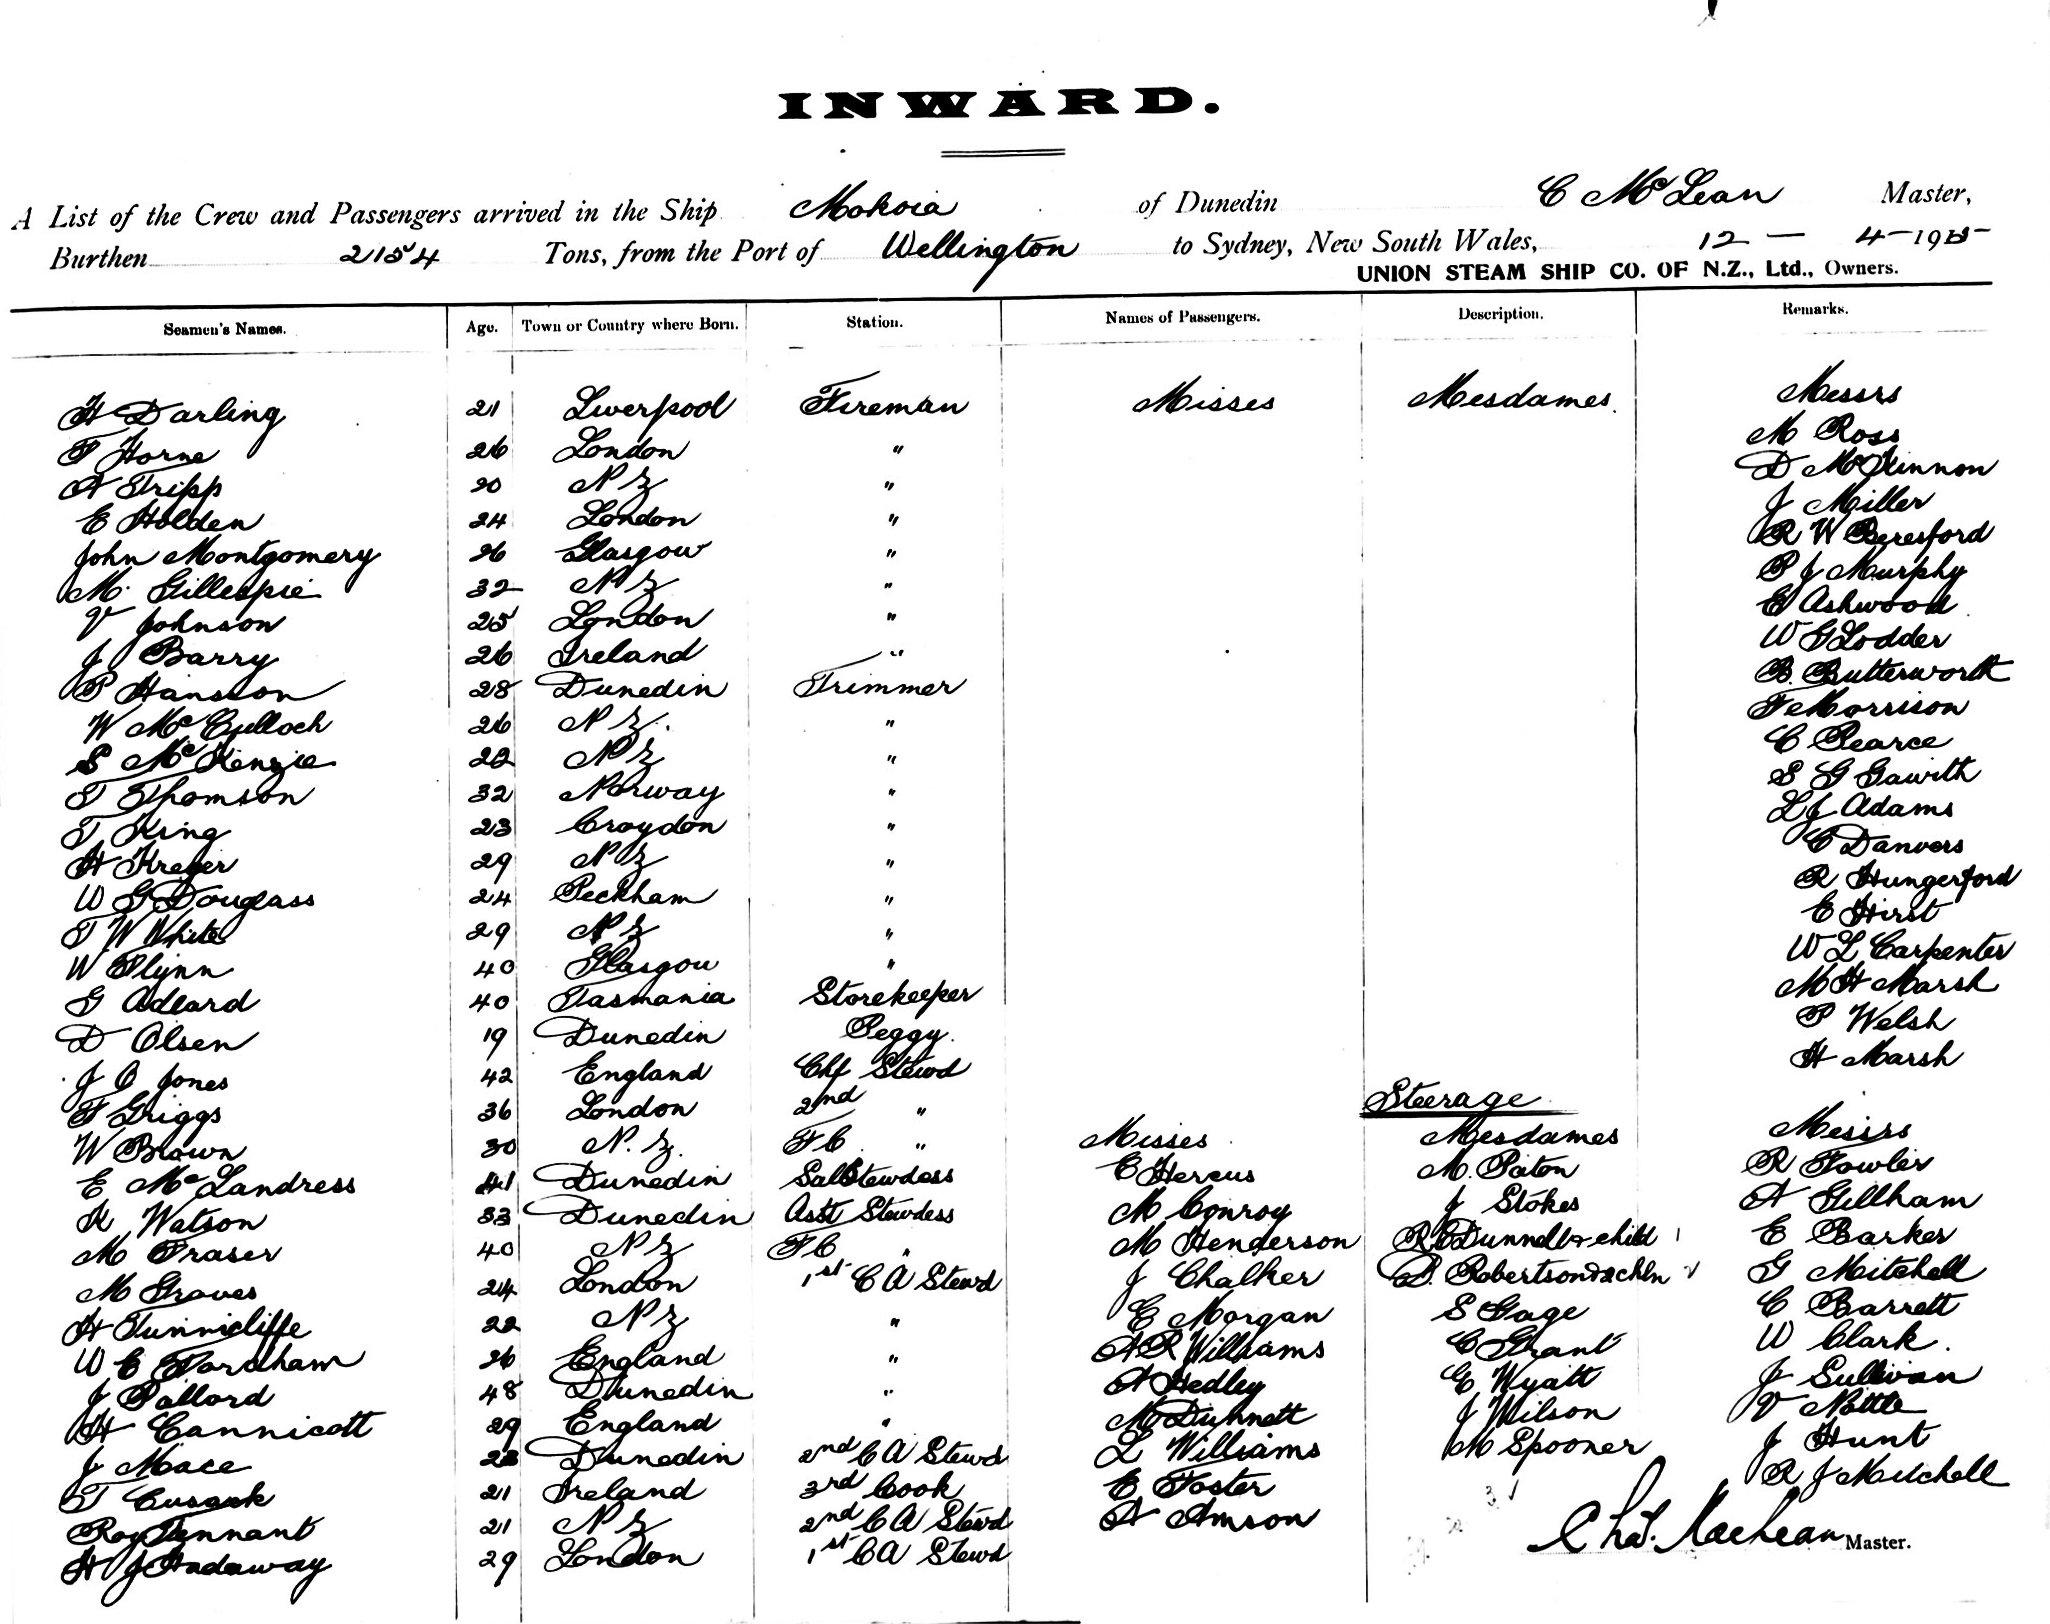 INWARD.
A List of the Crew and Passengers arrived in the Ship Mokoia of Dunedin C McLean Master,
Burthen 2154 Tons, from the Port of Wellington to Sydney, New South Wales, 12 - 4 - 19
UNION STEAM SHIP CO. OF N.Z., Ltd., Owners.
Seamen's Names. Age. Town or Country where Born. Station. Names of Passengers. Description. Remarks.
H Darling 21 Liverpool Fireman Misses Mesdames. Messrs
F Horne 26 London " M Ross
A Tripp 20 N Z " D McKinnon
E Holden 24 London " J Miller
John Montgomery 26 Glasgow " R W Beresford
M. Gillespie 32 N Z " P J Murphy
V Johnson 25 London " E Ashwood
J Barry 26 Ireland " W G Lodder
P Hansson 28 Dunedin Trimmer B. Butterworth
W McCulloch 26 N Z. " F Morrison
S McKenzie 22 N Z " C Pearce
T Thomson 32 Norway " S G Gawith
T King 23 Croydon " L J Adams
H Kreger 29 N Z " C Danvers
W G Douglass 24 Peckham " R Hungerford
T W White 29 N Z " E Hirst
W Flynn 40 Glasgow " W L Carpenter
G Adlard 40 Tasmania Storekeeper M H Marsh
D Olsen 19 Dunedin Peggy. P Welsh
J O Jones 42 England Chf Stewd H Marsh
F Griggs 36 London 2nd " Steerage
W Brown 30 N. Z. F C " Misses Mesdames Messrs
E McLandress 41 Dunedin Sal Stewdess E Hercus M. Paton R Fowler
K Watson 33 Dunedin Asst Stewdess M Conroy J Stokes A Gillham
M Fraser 40 N Z F C " M Henderson R E Dunnell & child E Barker
M Groves 24 London 1st C A Stewd J Chalker Robertson & 2 chln G Mitchell
H Tunnicliffe 22 N Z " E Morgan S Gage C Barrett
W E Fordham 26 England " A R Williams C Grant W Clark.
J Pallord 48 Dunedin " A Hedley G Wyatt J Sullivan
H Cannicott 29 England " M Dunnett J Wilson V Nottle
J Mace 23 Dunedin 2nd C A Stewd L Williams M Spooner J Hunt
T Cusack 21 Ireland 3rd Cook E Foster R J Mitchell
Roy Tennant 21 N Z 2nd C A Stewd A Amson
H J Hadaway 29 London 1st C A Stewd Chas. MacLean Master.